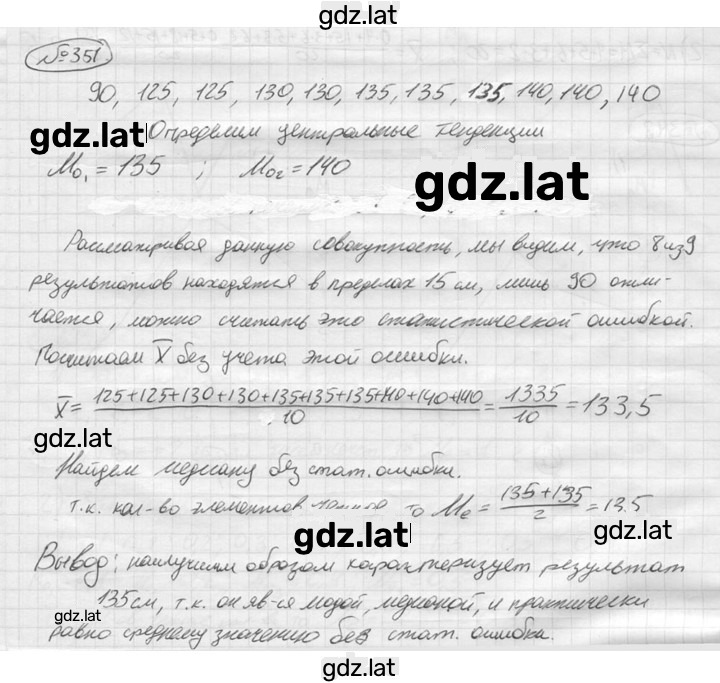 gdz.lat
№351.
90, 125, 125, 130, 130, 135, 135, 135, 140, 140, 140
gdz.lat Определим центральные тенденции
Mo₁ = 135 ; Mo₂ = 140
gdz.lat
Рассматривая данную совокупность, мы видим, что 8 из 9
результатов находятся в пределах 15 см, лишь 90 отли-
чается, можно считать это статистической ошибкой.
Посчитаем X̄ без учета этой ошибки.
X̄ = (125+125+130+130+135+135+135+140+140+140)/10 = 1335/10 = 133,5
gdz.lat
Найдем медиану без стат. ошибки.
т.к. кол-во элементов то Me = (135+135)/2 = 13.5
gdz.lat
Вывод: наилучшим образом характеризует результат
135см, т.к. он яв-ся модой, медианой, и практически
gdz.lat
равно среднему значению без стат. ошибка.
gdz.lat